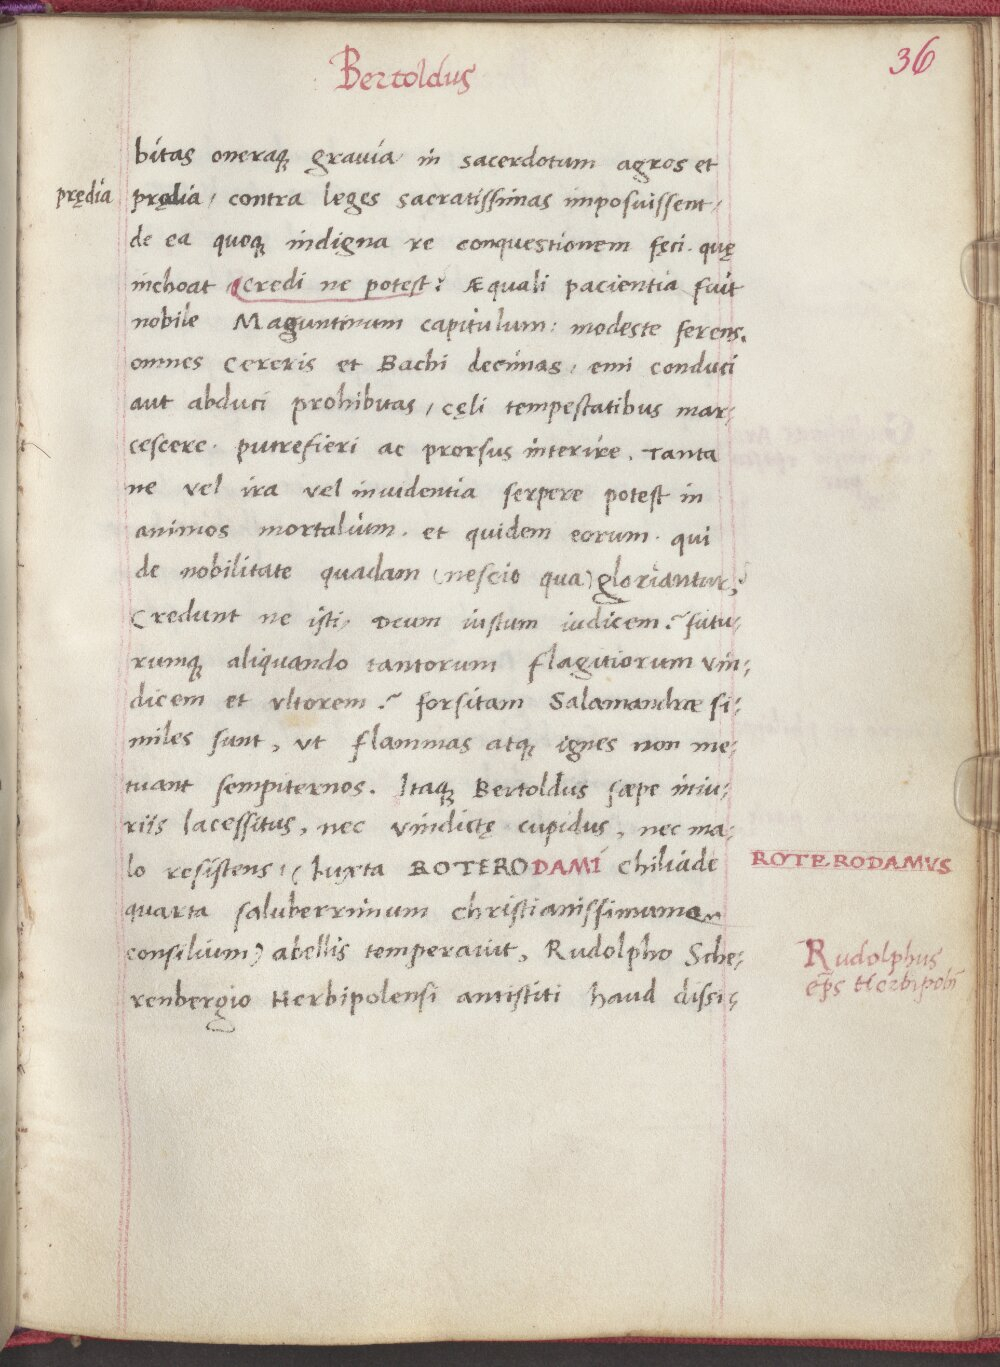 Bertoldus
36
bitas oneraqꝫ gravia in sacerdotum agros et
prędia
prędia, contra leges sacratissimas imposuissent,
de ea quoqꝫ indigna re conquestionem fęci. quę
inchoat Credi ne potest? Æquali pacientia fuit
nobile Maguntinum capitulum: modeste ferens.
omnes Cereris et Bachi decimas, emi conduci
aut abduci prohibitas, cęli tempestatibus mar:
cescere. putrefieri ac prorsus interire. Tanta
ne vel ira vel invidentia serpere potest in
animos mortalium. et quidem eorum. qui
de nobilitate quadam (nescio qua) gloriantur?
Credunt ne isti, Deum iustum iudicem? futu:
rumqꝫ aliquando tantorum flagitiorum vin:
dicem et vltorem? forsitam Salamandræ si:
miles sunt, vt flammas atqꝫ ignes non me:
tuant sempiternos. Itaqꝫ Bertoldus sæpe iniu:
riis lacessitus, nec vindictę cupidus, nec ma:
lo resistens, (Iuxta ROTERODAMI chiliade
ROTERODAMVS
quarta saluberrimum christianissimum
consilium) abellis temperavit, Rudolpho Sche:
Rudolphus
renbergio Herbipolensi antistiti haud dissi:
ep̄s Herbipoln̄